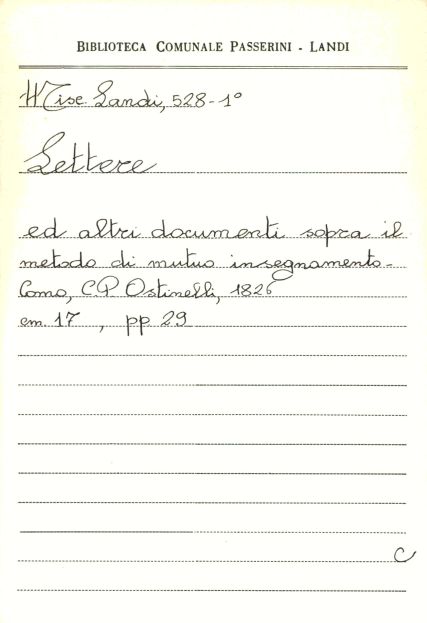 BIBLIOTECA COMUNALE PASSERINI - LANDI
Misc Landi, 528-1º
Lettere
ed altri documenti sopra il
metodo di mutuo insegnamento-
Como, C.P. Ostinelli, 1826
cm. 17 , pp 29
C